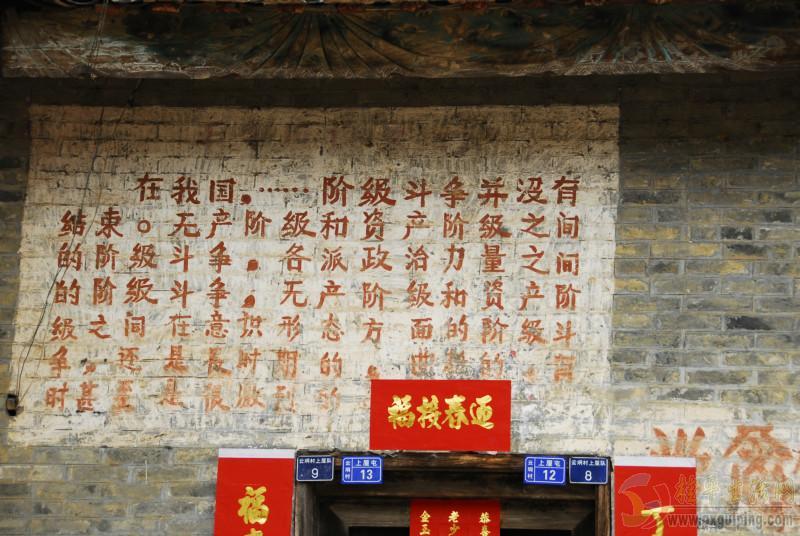 在我国，……阶级斗争并没有
结束。无产阶级和资产阶级之间
的阶级斗争，各派政治力量之间
的阶级斗争，无产阶级和资产阶
级之间在意识形态方面的阶级斗
争，还是长时期的
时甚至是
迎春接福
上屋队
9
上屋屯
13
上屋屯
12
上屋队
8
福
恭喜
老少
金玉
www.gxguiping.com